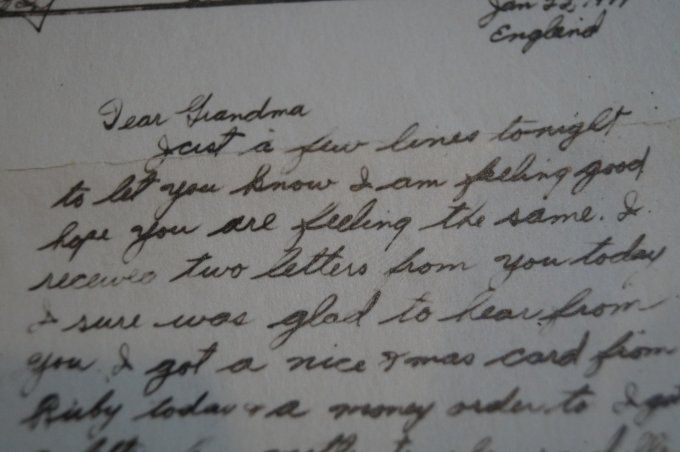 Jan 22, 19
England
Dear Grandma
Just a few lines tonight
to let you know I am feeling good
hope you are feeling the same. I
received two letters from you today
I sure was glad to hear from
you I got a nice Xmas card from
Ruby today + a money order to I got